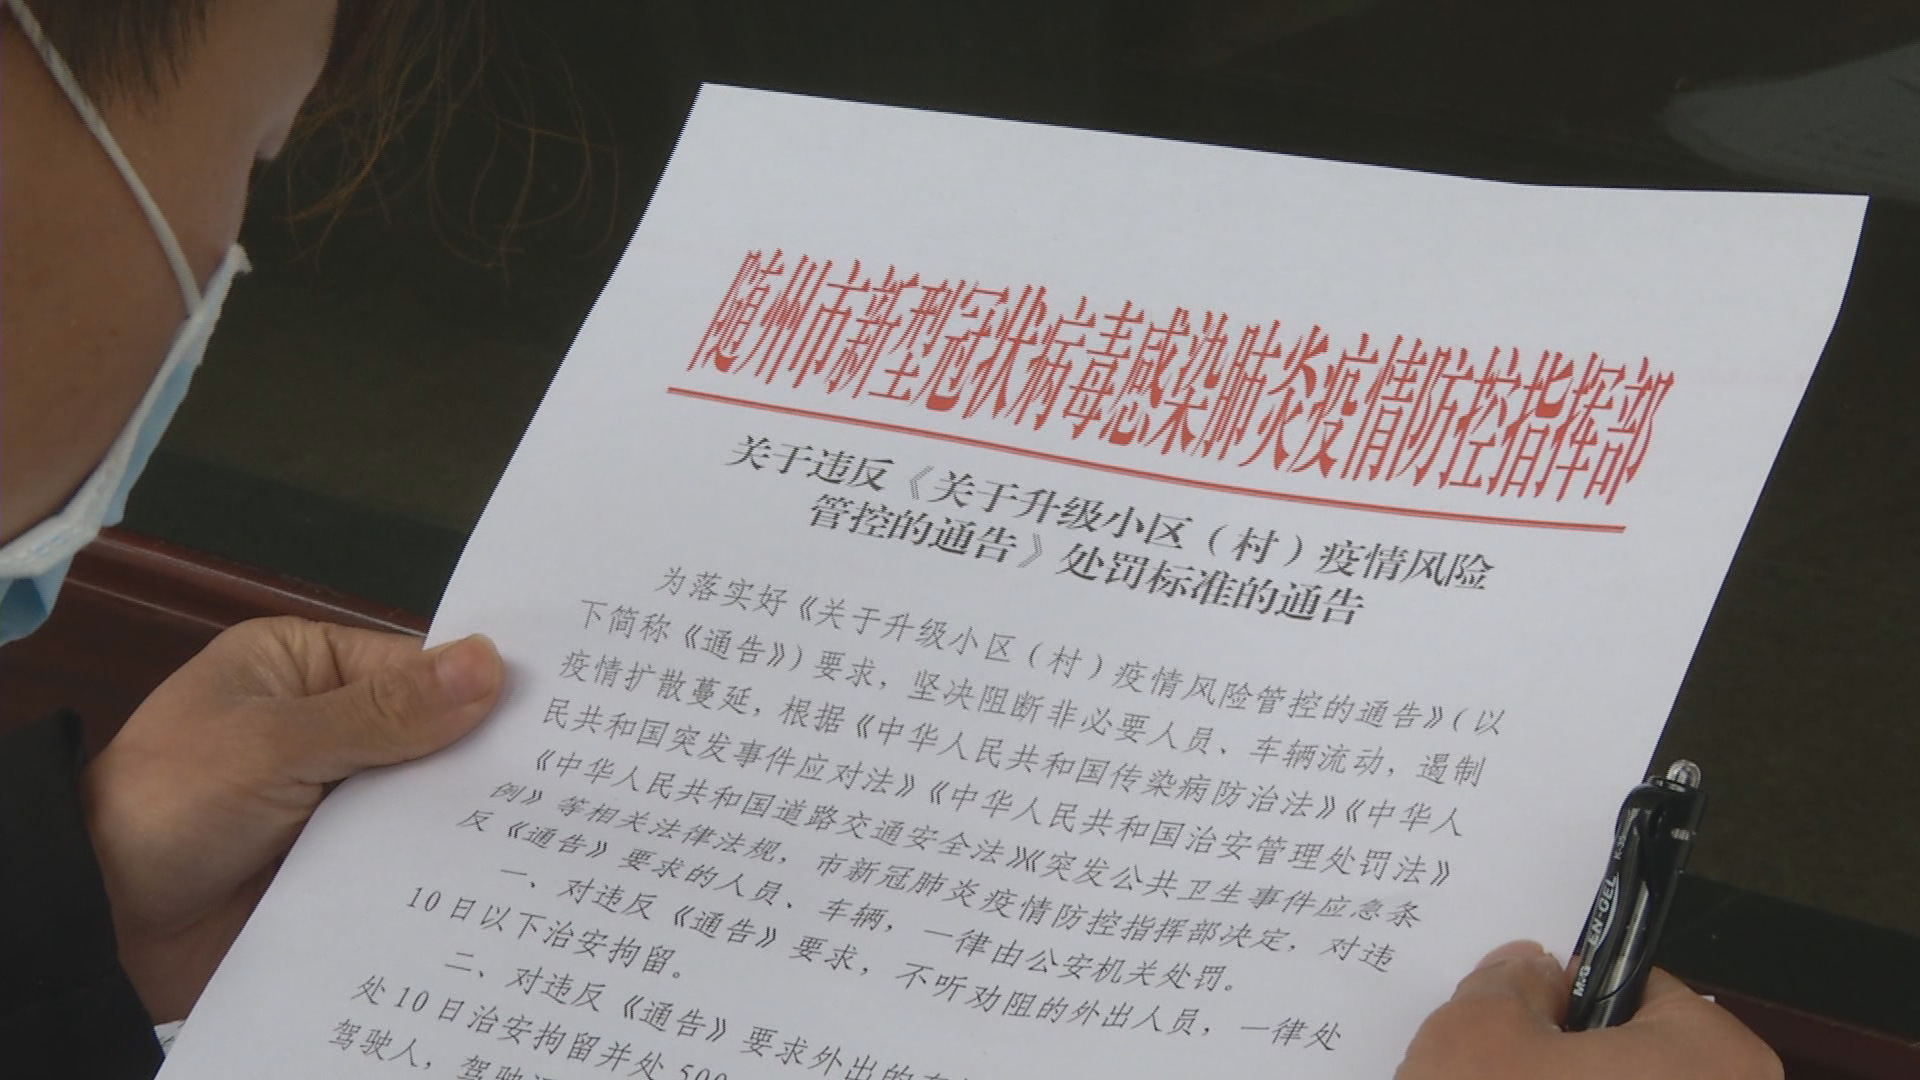 随州市新型冠状病毒感染肺炎疫情防控指挥部
关于违反《关于升级小区（村）疫情风险
管控的通告》处罚标准的通告
为落实好《关于升级小区（村）疫情风险管控的通告》（以
下简称《通告》）要求，坚决阻断非必要人员、车辆流动，遏制
疫情扩散蔓延，根据《中华人民共和国传染病防治法》《中华人
民共和国突发事件应对法》《中华人民共和国治安管理处罚法》
《中华人民共和国道路交通安全法》《突发公共卫生事件应急条
例》等相关法律法规，市新冠肺炎疫情防控指挥部决定，对违
反《通告》要求的人员、车辆，一律由公安机关处罚。
一、对违反《通告》要求，不听劝阻的外出人员，一律处
10日以下治安拘留。
二、对违反《通告》要求外出的
处10日治安拘留并处500
驾驶人，驾驶
M&G EN-GEL K-35